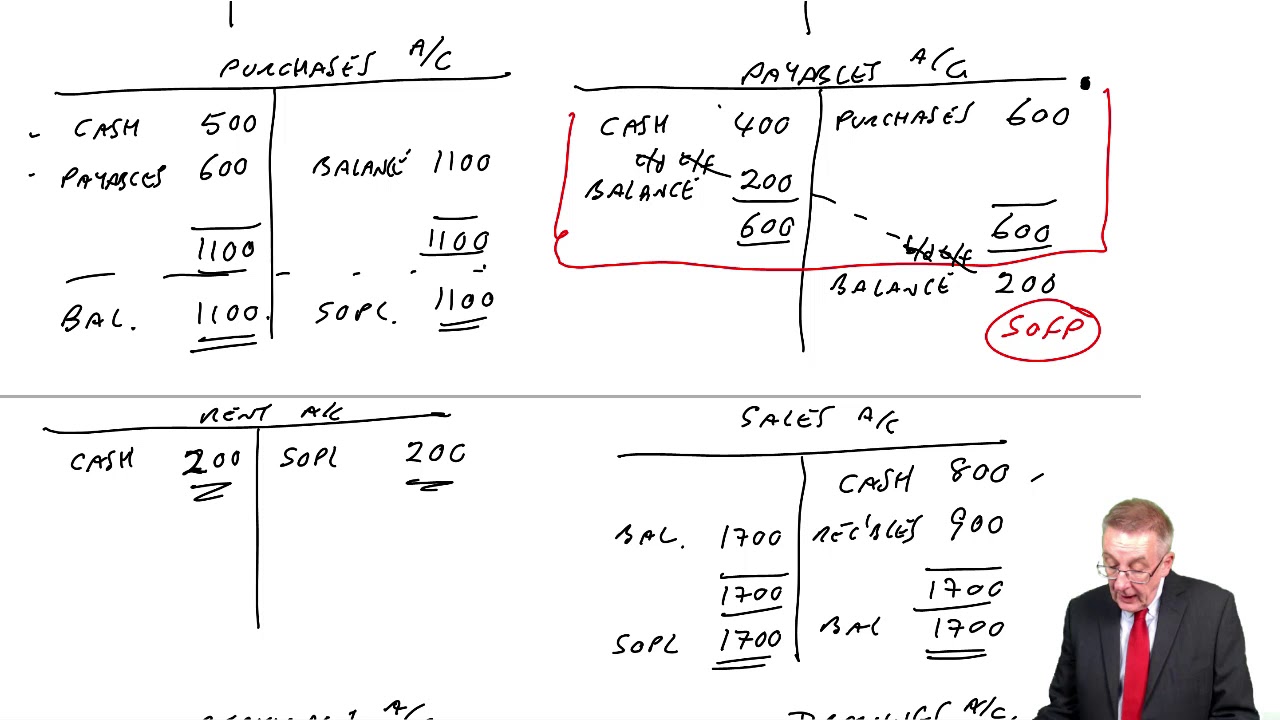 PURCHASES A/C
CASH 500
PAYABLES 600 BALANCE 1100
1100 1100
BAL. 1100. SOPL. 1100
PAYABLES A/C
CASH 400 PURCHASES 600
c/d c/f
BALANCE 200
600 600
b/d b/f
BALANCE 200
SOFP
RENT A/C
CASH 200 SOPL 200
SALES A/C
CASH 800
BAL. 1700 REC'BLES 900
1700 1700
SOPL 1700 BAL 1700
A/C
A/C.